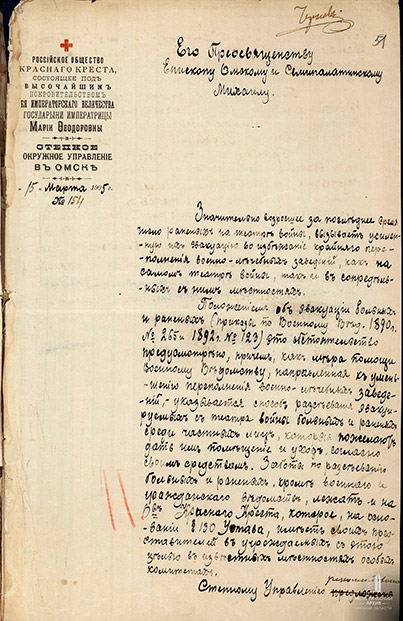 51
Его Преосвященству
Епископу Омскому и Семипалатинскому
Михаилу.
РОССІЙСКОЕ ОБЩЕСТВО
КРАСНАГО КРЕСТА,
СОСТОЯЩЕЕ ПОДЪ
ВЫСОЧАЙШИМЪ
ПОКРОВИТЕЛЬСТВОМЪ
ЕЯ ИМПЕРАТОРСКАГО ВЕЛИЧЕСТВА
ГОСУДАРЫНИ ИМПЕРАТРИЦЫ
МАРІИ ѲЕОДОРОВНЫ
СТЕПНОЕ
ОКРУЖНОЕ УПРАВЛЕНІЕ
ВЪ ОМСКѢ
15 Марта 1905 г.
№ 154
Значительно возросшее за послѣднее время
число раненыхъ на театрѣ войны, вызываетъ усилен-
ную ихъ эвакуацію во избѣжаніе крайняго пере-
полненія военно-лѣчебныхъ заведеній, какъ на
самомъ театрѣ войны, такъ и въ сопредѣль-
ныхъ съ нимъ мѣстностяхъ.
Положеніемъ объ эвакуаціи больныхъ
и раненыхъ (приказы по Военному Вѣд. 1890г.
№ 265 и 1892г. № 123) это обстоятельство
предусмотрѣно, причемъ, какъ мѣра помощи
военному Вѣдомству, направленная къ умень-
шенію переполненія военно-лѣчебныхъ заведе-
ній,- указывается способъ разсѣванія эвакуи-
руемыхъ съ театра войны больныхъ и раненыхъ
среди частныхъ лицъ, которыя пожелаютъ
дать имъ помѣщеніе и уходъ, согласно
своимъ средствамъ. Заботы по разсѣванію
больныхъ и раненыхъ, кромѣ военнаго и
гражданскаго вѣдомствъ, лежатъ и на
О-вѣ Краснаго Креста, которое, на осно-
ваніи § 130 Устава, имѣетъ своихъ пред-
ставителей въ учреждаемыхъ съ этою
цѣлью въ извѣстныхъ мѣстностяхъ особыхъ
комитетахъ.
Степному Управленію предложено
АРХИВ